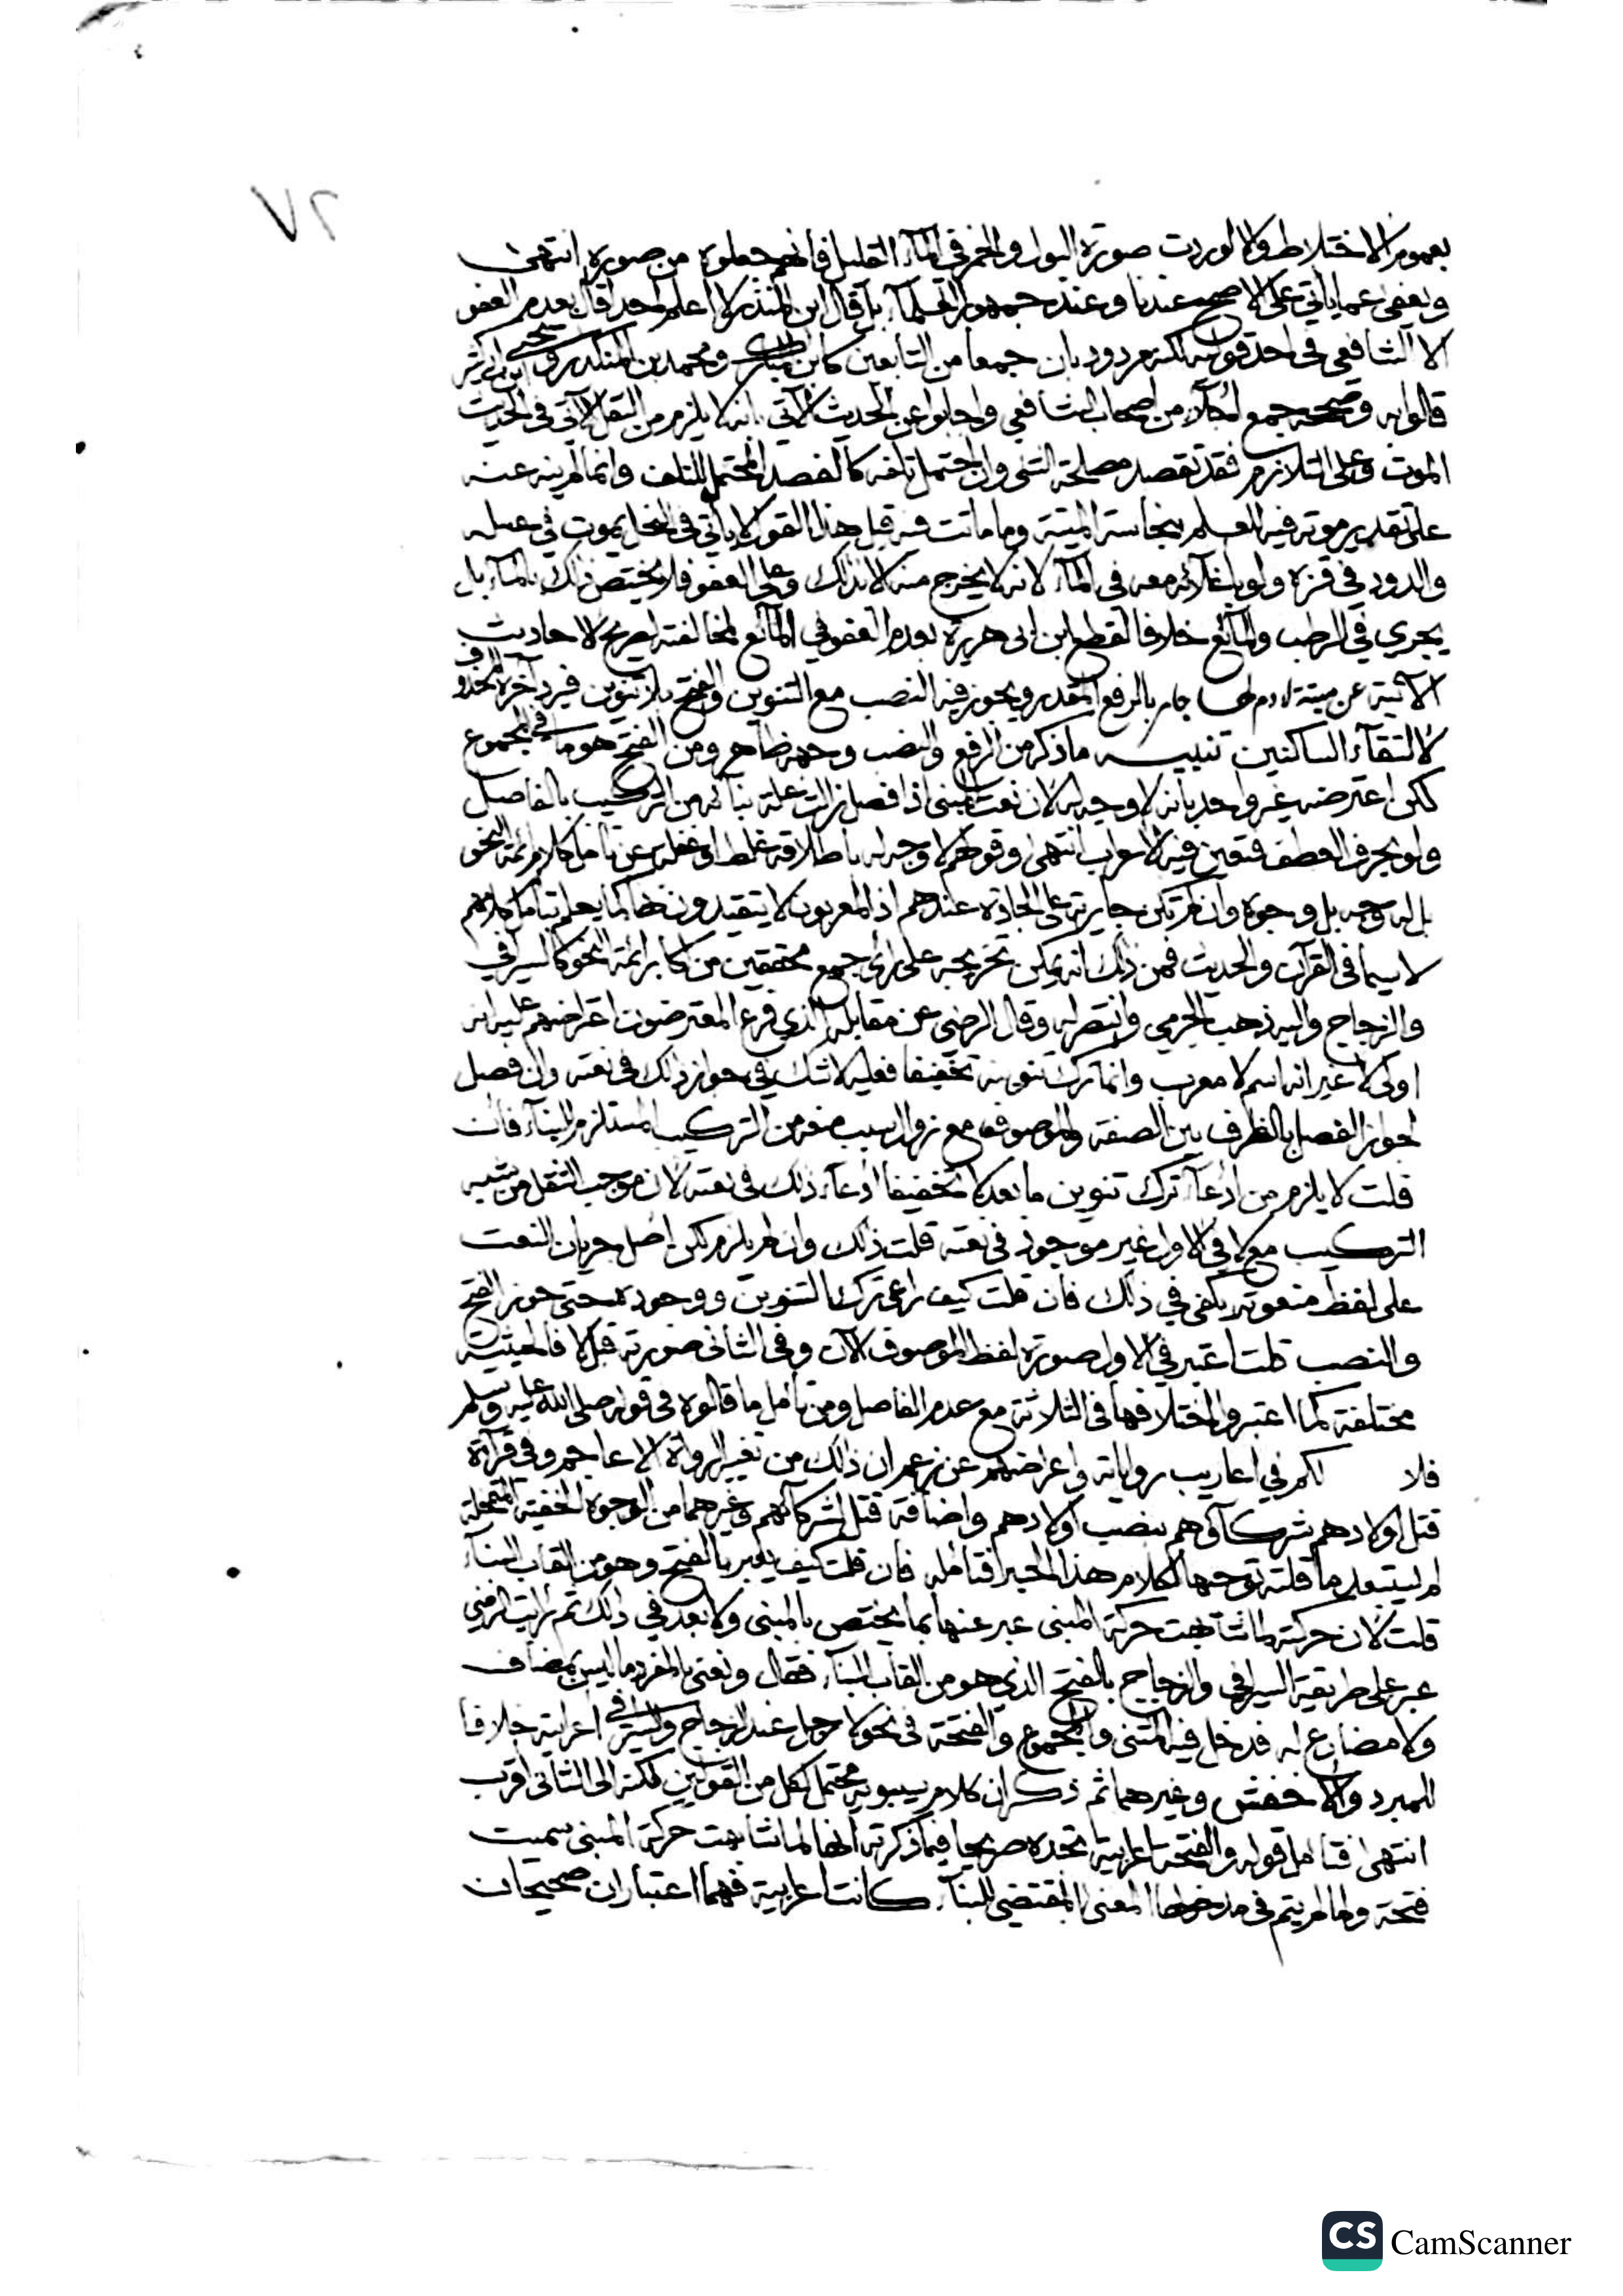 ٧٢
بعموم الاختلاط والا لوردت صورة البول والخمر في المآء القليل فانهم جعلوه من صوره انتهى
ويعفى عما ياتي على الاصح عندنا وعند جمهور العلمآء بل قال ابن المنذر لا اعلم احدا قال بعدم العفو
الا الشافعي في احد قوليه لكنه مردود بان جمعا من التابعين كابن ومحمد بن المنكدر ويحيى بن ابي كثير
قالوا به وصححه جمع اجلآء من اصحاب الشافعي واجابوا عن الحديث الآتي بانه لا يلزم من النقل الآتي في الحديث
الموت وعلى التلازم فقد تقصد مصلحة الشي وان احتمل تلفه كالفصد المحتمل للتلف وانما لم ينه عنه
على تقدير موته فيه للعلم بنجاسة الميتة وما ماتت فيه قيل هذا القول لا ياتي في النحل يموت في عسله
والدود في قزه ولو باغلائه معه في المآء لانه لا يخرج منه الا بذلك وعلى العفو فلا يختص ذلك بالمآء بل
يجري في الرطب والمائع خلافا لقطع ابن ابي هريرة بعدم العفو في المائع لمخالفته لصريح الاحاديث
الآتية عن ميتة لا دم لها جار بالرفع المقدر ويجوز فيه النصب مع التنوين والفتح بلا تنوين فيرد آخره المحذوف
لالتقآء الساكنين تنبيـه ما ذكر من الرفع والنصب وجهه ظاهر ومن الفتح هو ما في المجموع
لكن اعترضه غير واحد بانه لا وجه له لان نعت المبني اذا فصل زالت علة بنائه من التركيب بالفاصل
ولو بحرف العطف فتعين فيه الاعراب انتهى وقولهم لا وجه له باطلاقه غلط او غفلة عن تامل كلام ائمة النحو
بل له وجه بل وجوه وان لم تكن جارية على الجادة عندهم اذ المعربون لا يتقيدون بها كما يعلم بتامل كلامهم
لا سيما في القرآن والحديث فمن ذلك انه يمكن تخريجه على راي جمع محققين من اكابر ائمة النحو كالسيرافي
والزجاج واليه ذهب الجرمي وانتصر له وقال الرضي عن مقابله الذي فرع المعترضون اعتراضهم عليه انه
اولى لا غير انه اسم لا معرب وانما ترك تنوينه تخفيفا فعليه لا شك في جواز ذلك في نعته وان فصل
لجواز الفصل بالظرف بين الصفة والموصوف مع زوال سبب ضعفه من التركيب المستلزم للبنآء فان
قلت لا يلزم من ادعآء ترك تنوين ما بعد لا تخفيفا ادعآء ذلك في نعته لان موجب الثقل من شبه
التركيب مع لا في الاول غير موجود في نعته قلت ذلك وان لم يلزم لكن اصل جريان النعت
على لفظ منعوته يكفي في ذلك فان قلت كيف راعى ترك التنوين ووجوده حتى جوز الفتح
والنصب قلت اعتبر في الاول صورة لفظ الموصوف الآن وفي الثاني صورته قبل لا فالحيثية
مختلفة كما اعتبروا اختلافها في الثلاثة مع عدم الفاصل ومن تامل ما قالوه في قوله صلى الله عليه وسلم
فلا لكم في اعاريب رواياته واعراضهم عن زعم ان ذلك من تغيير الرواة الاعاجم وفي قرآءة
قتل اولادهم شركآؤهم بنصب اولادهم واضافة قتل لشركآئهم وغيرهما من الوجوه الخفية المتمحلة
لم يستبعد ما قلته توجيها لكلام هذا الحبر فتامله فان قلت كيف يعبر بالفتح وهو من القاب البنآء
قلت لان حركته لما شابهت حركة المبني عبر عنها بما يختص بالمبني ولا بعد في ذلك ثم رايت الرضي
عبر على طريقة السيرافي والزجاج بالفتح الذي هو من القاب البنآء فقال ونعني بالمفرد ما ليس بمضاف
ولا مضارع له فدخل فيه المثنى والمجموع والفتحة في نحو لا رجل عند الزجاج والسيرافي اعرابية خلافا
للمبرد والاخفش وغيرهما ثم ذكر ان كلام سيبويه محتمل لكل من القولين لكنه الى الثاني اقرب
انتهى فتامل قوله والفتحة اعرابية تجده صريحا فيما ذكرته انها لما شابهت حركة المبني سميت
فتحة ولما لم يتم في مدخولها المعنى المقتضي للبنآء كانت اعرابية فهما اعتباران صحيحان
CS CamScanner